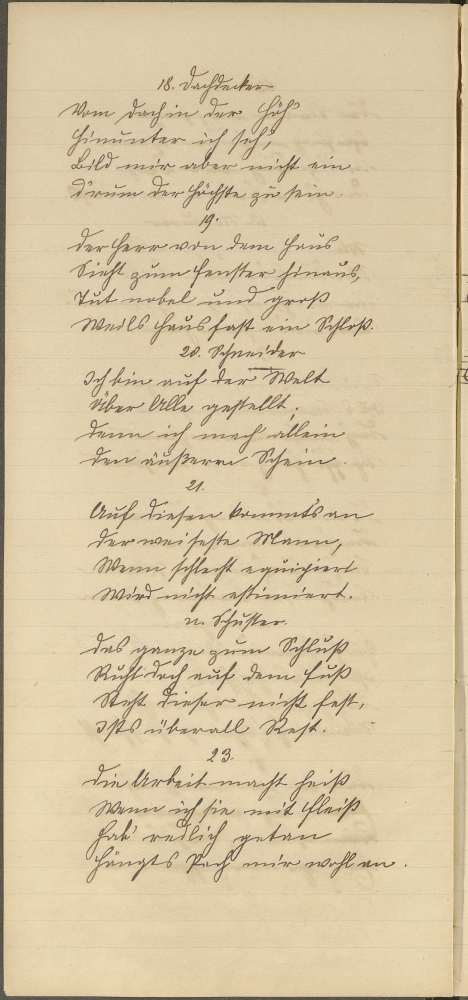 18. Dachdecker
Vom Dach in der Höh'
Hinunter ich seh',
Bild mir aber nicht ein
D'rum der Höchste zu sein.
19.
Der Herr von dem Haus
Sieht zum Fenster hinaus,
Tut nobel und groß
Weils Haus fast ein Schloß.
20. Schneider
Ich bin auf der Welt
Über Alle gestellt;
Denn ich mach allein
Den äußeren Schein.
21.
Auf diesen kommt's an
Der weiseste Mann,
Wenn schlecht equipiert
Wird nicht estimiert.
22. Schuster.
Das ganze zum Schluß
Ruht doch auf dem Fuß
Steht dieser nicht fest,
Ists überall Rest.
23.
Die Arbeit macht heiß
Wenn ich sie mit Fleiß
Hab' redlich getan
Hängts Pech mir wohl an.